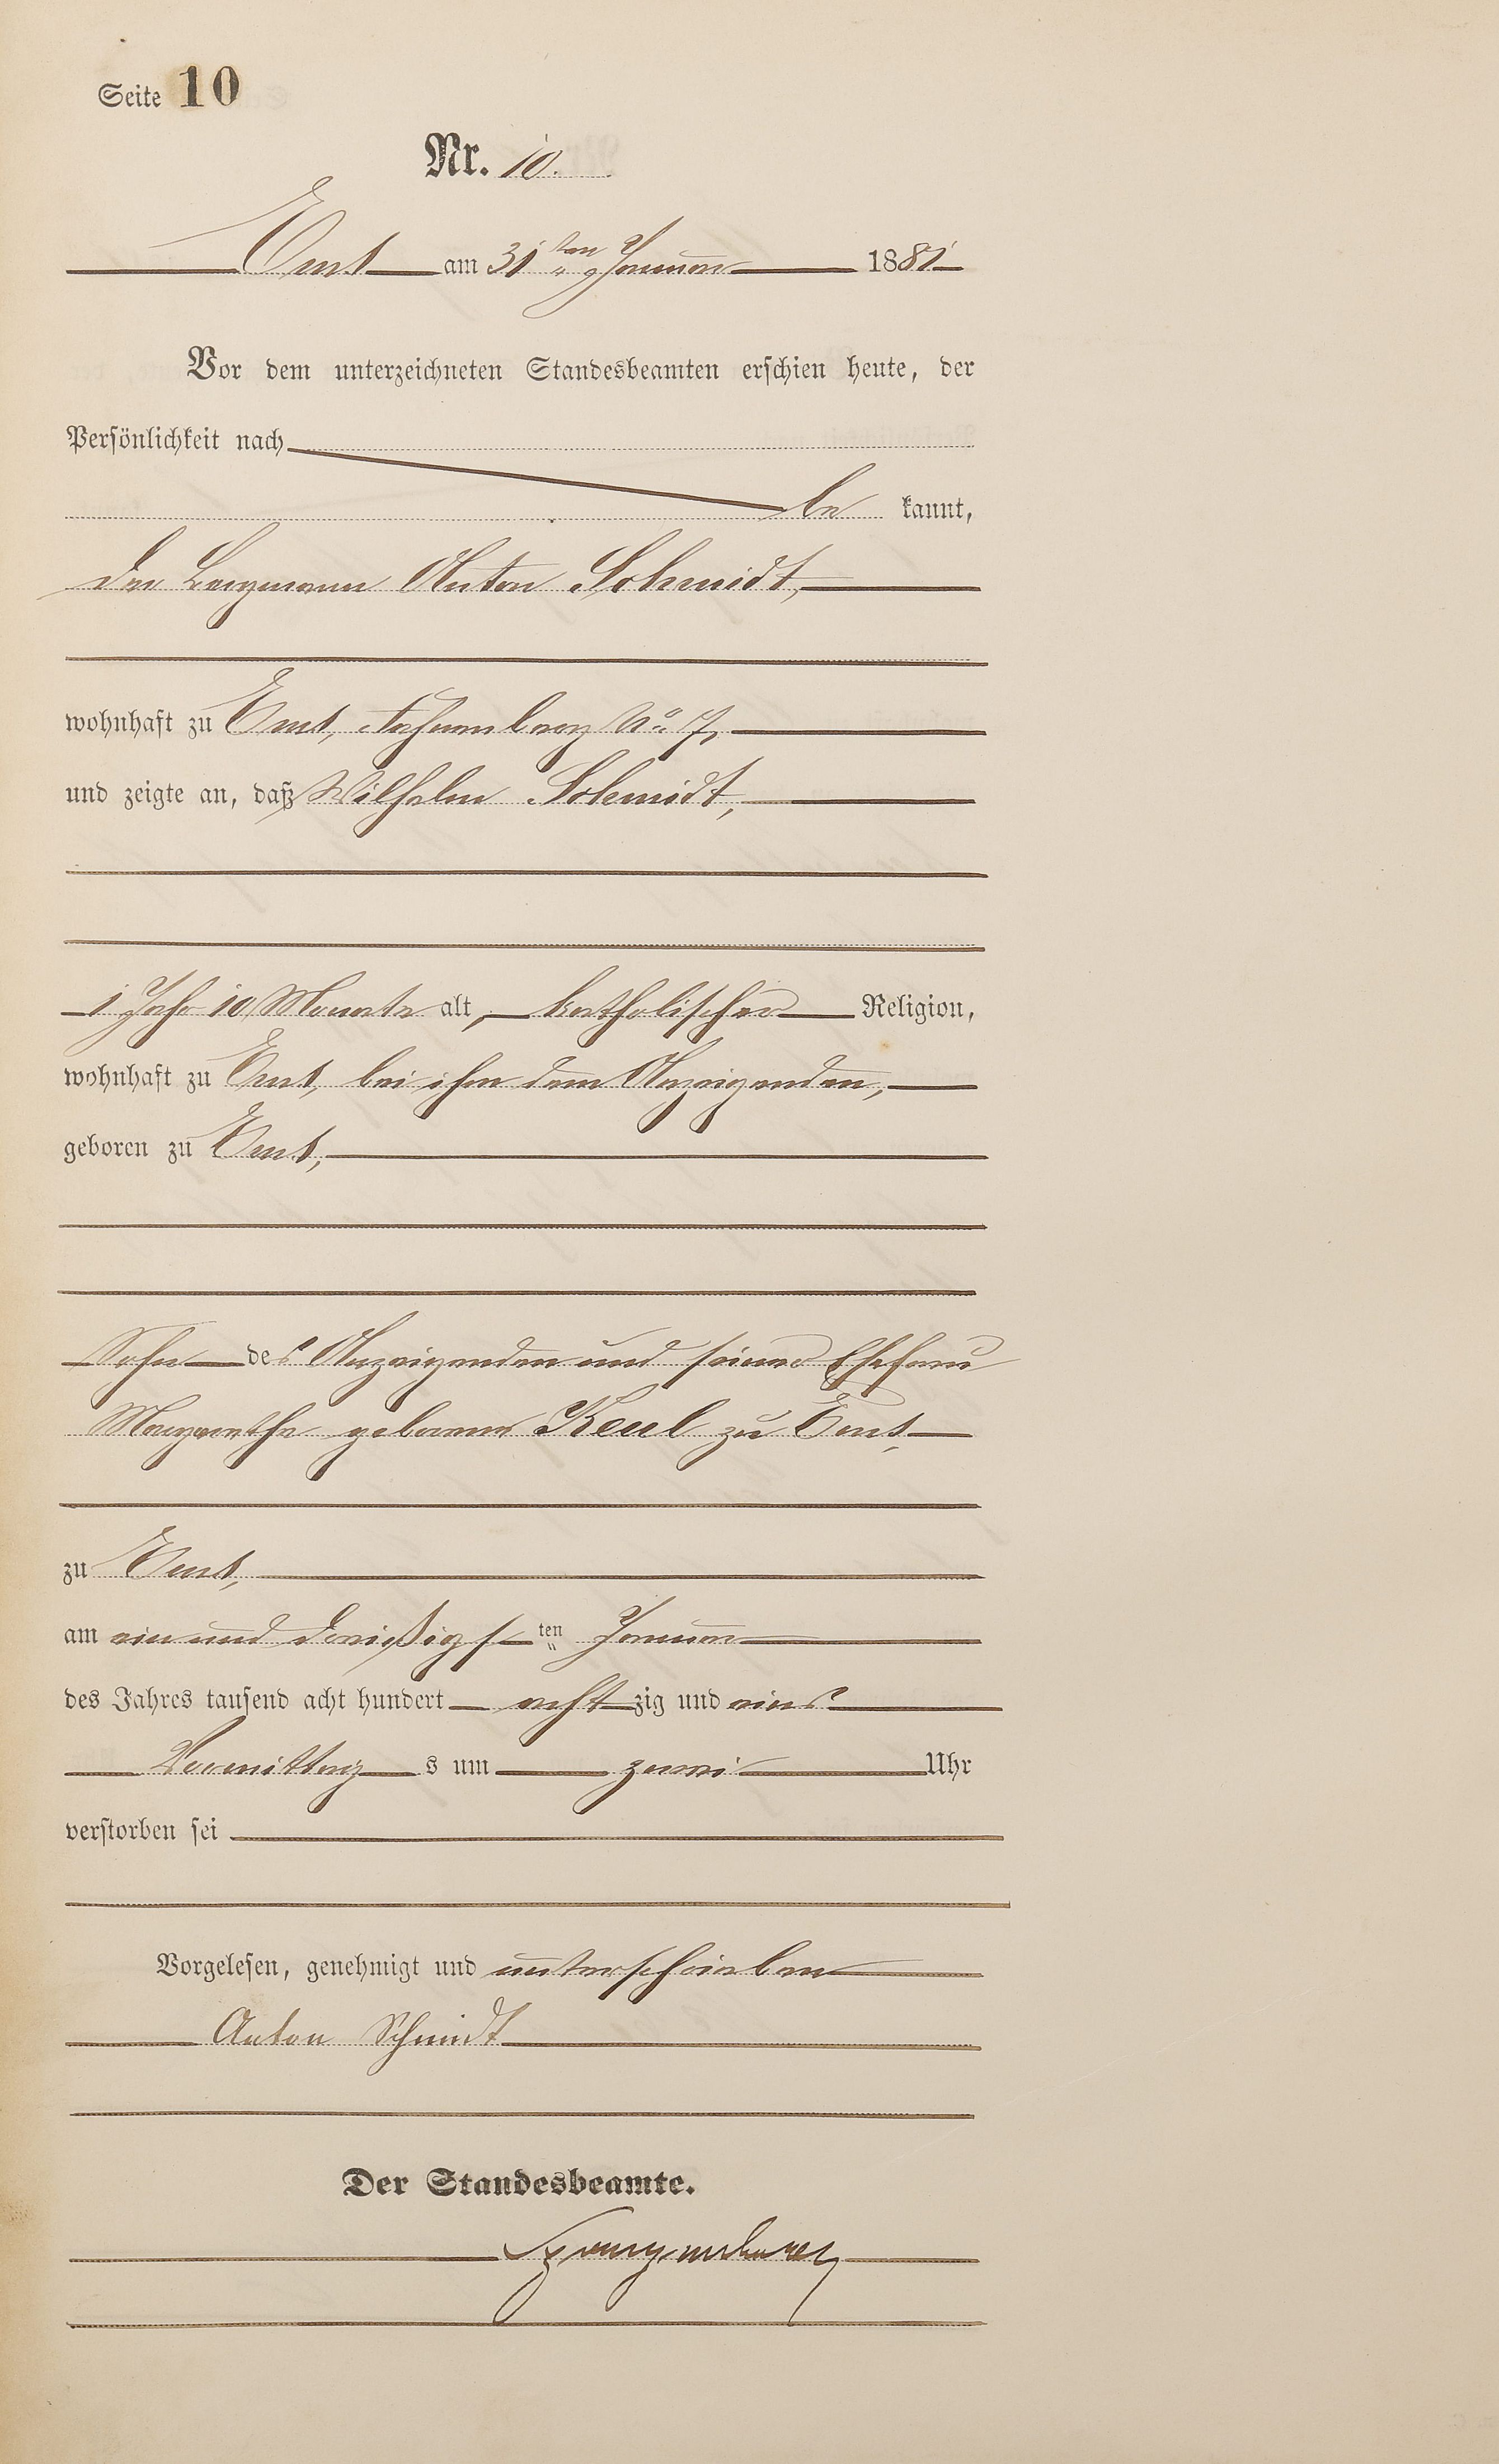 Seite 10
Nr. 10.
Ems am 31ten Januar 1881
Vor dem unterzeichneten Standesbeamten erschien heute, der
Persönlichkeit nach
be kannt,
der Bergmann Anton Schmidt,
wohnhaft zu Ems, No. 7,
und zeigte an, daß Wilhelm Schmidt,
1 Jahr 10 Monate alt, katholischer Religion,
wohnhaft zu Ems, bei ihm dem Anzeigenden,
geboren zu Ems,
Sohn des Anzeigenden und seiner Ehefrau
Margarethe geborene Keul zu Ems,
zu Ems,
am ein und dreißigsten Januar
des Jahres tausend acht hundert achtzig und eins
Vormittags um zwei Uhr
verstorben sei
Vorgelesen, genehmigt und unterschrieben
Anton Schmidt
Der Standesbeamte.